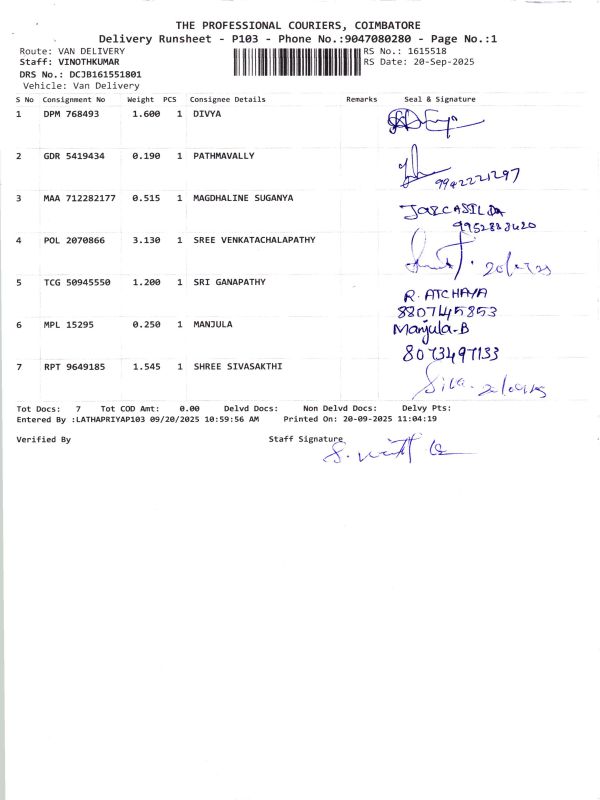 THE PROFESSIONAL COURIERS, COIMBATORE
Delivery Runsheet - P103 - Phone No.:9047080280 - Page No.:1
Route: VAN DELIVERY RS No.: 1615518
Staff: VINOTHKUMAR RS Date: 20-Sep-2025
DRS No.: DCJB161551801
Vehicle: Van Delivery
S No Consignment No Weight PCS Consignee Details Remarks Seal & Signature
1 DPM 768493 1.600 1 DIVYA
2 GDR 5419434 0.190 1 PATHMAVALLY
9942221297
3 MAA 712282177 0.515 1 MAGDHALINE SUGANYA
9952888420
4 POL 2070866 3.130 1 SREE VENKATACHALAPATHY
5 TCG 50945550 1.200 1 SRI GANAPATHY
R. ATCHAYA
8807445853
6 MPL 15295 0.250 1 MANJULA Manjula-B
8073497133
7 RPT 9649185 1.545 1 SHREE SIVASAKTHI
Siva.
Tot Docs: 7 Tot COD Amt: 0.00 Delvd Docs: Non Delvd Docs: Delvy Pts:
Entered By :LATHAPRIYAP103 09/20/2025 10:59:56 AM Printed On: 20-09-2025 11:04:19
Verified By Staff Signature